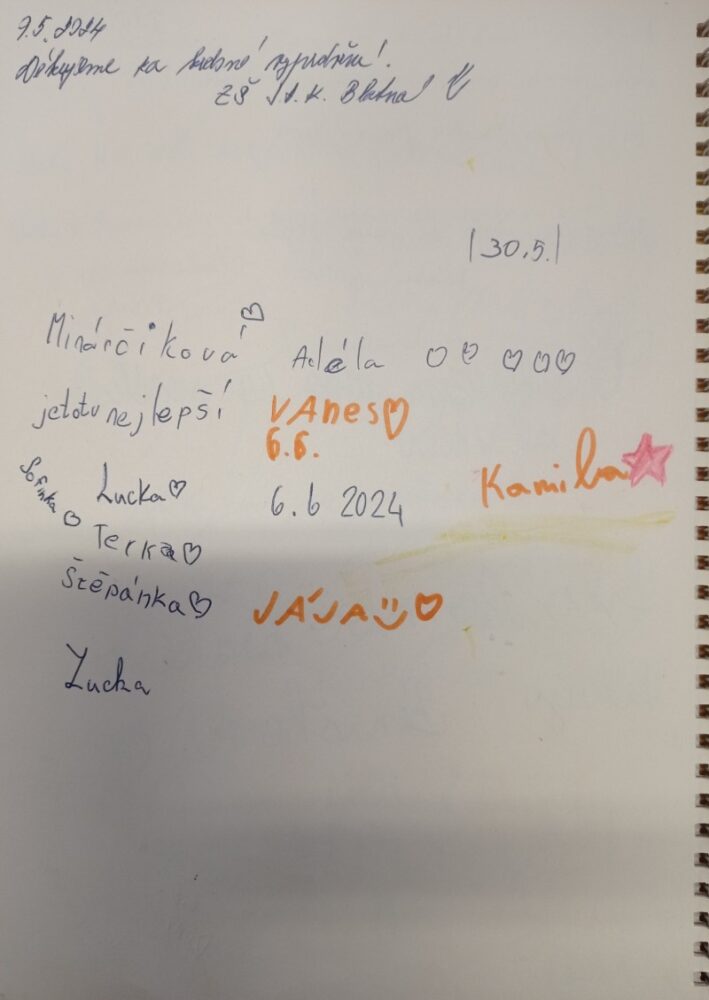 9.5.2024
Děkujeme za krásné vyprávění!
ZŠ J.A.K. Blatná
|30.5.|
Minárčiková Adéla
jetotunejlepší
VAnes
6.6.
Kamila
Sofinka
Lucka
6.6 2024
Terka
Štěpánka
JÁJA
Lucka